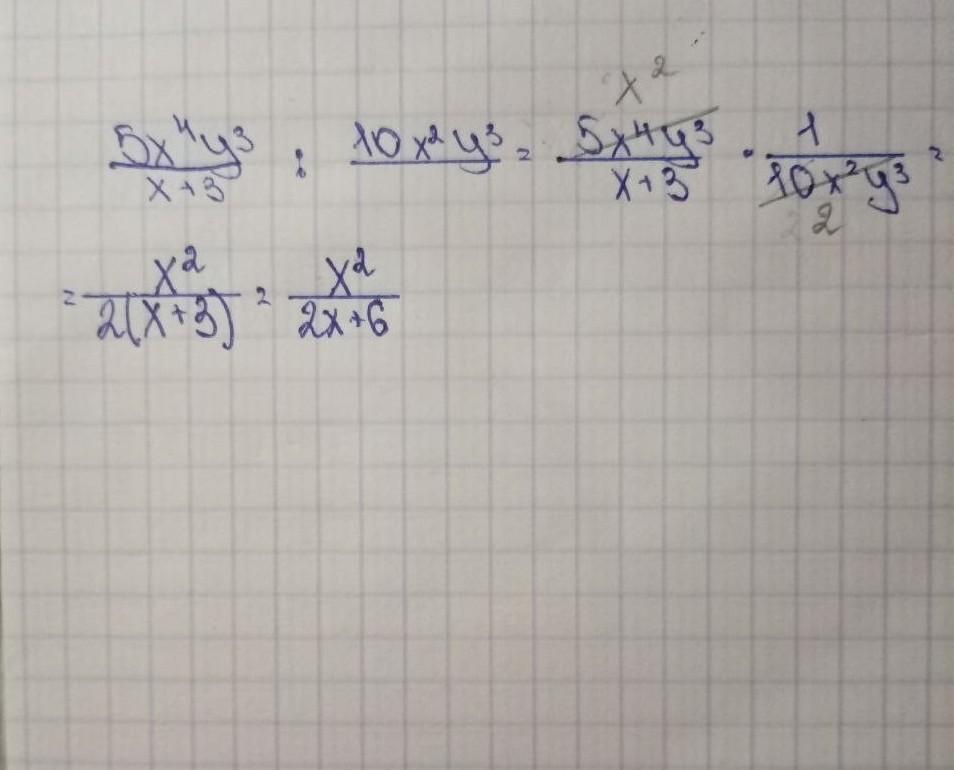 5x⁴y³/x+3 : 10x²y³/ = x² 5x⁴y³/x+3 · 1/10x²y³ 2 =
= x²/2(x+3) = x²/2x+6